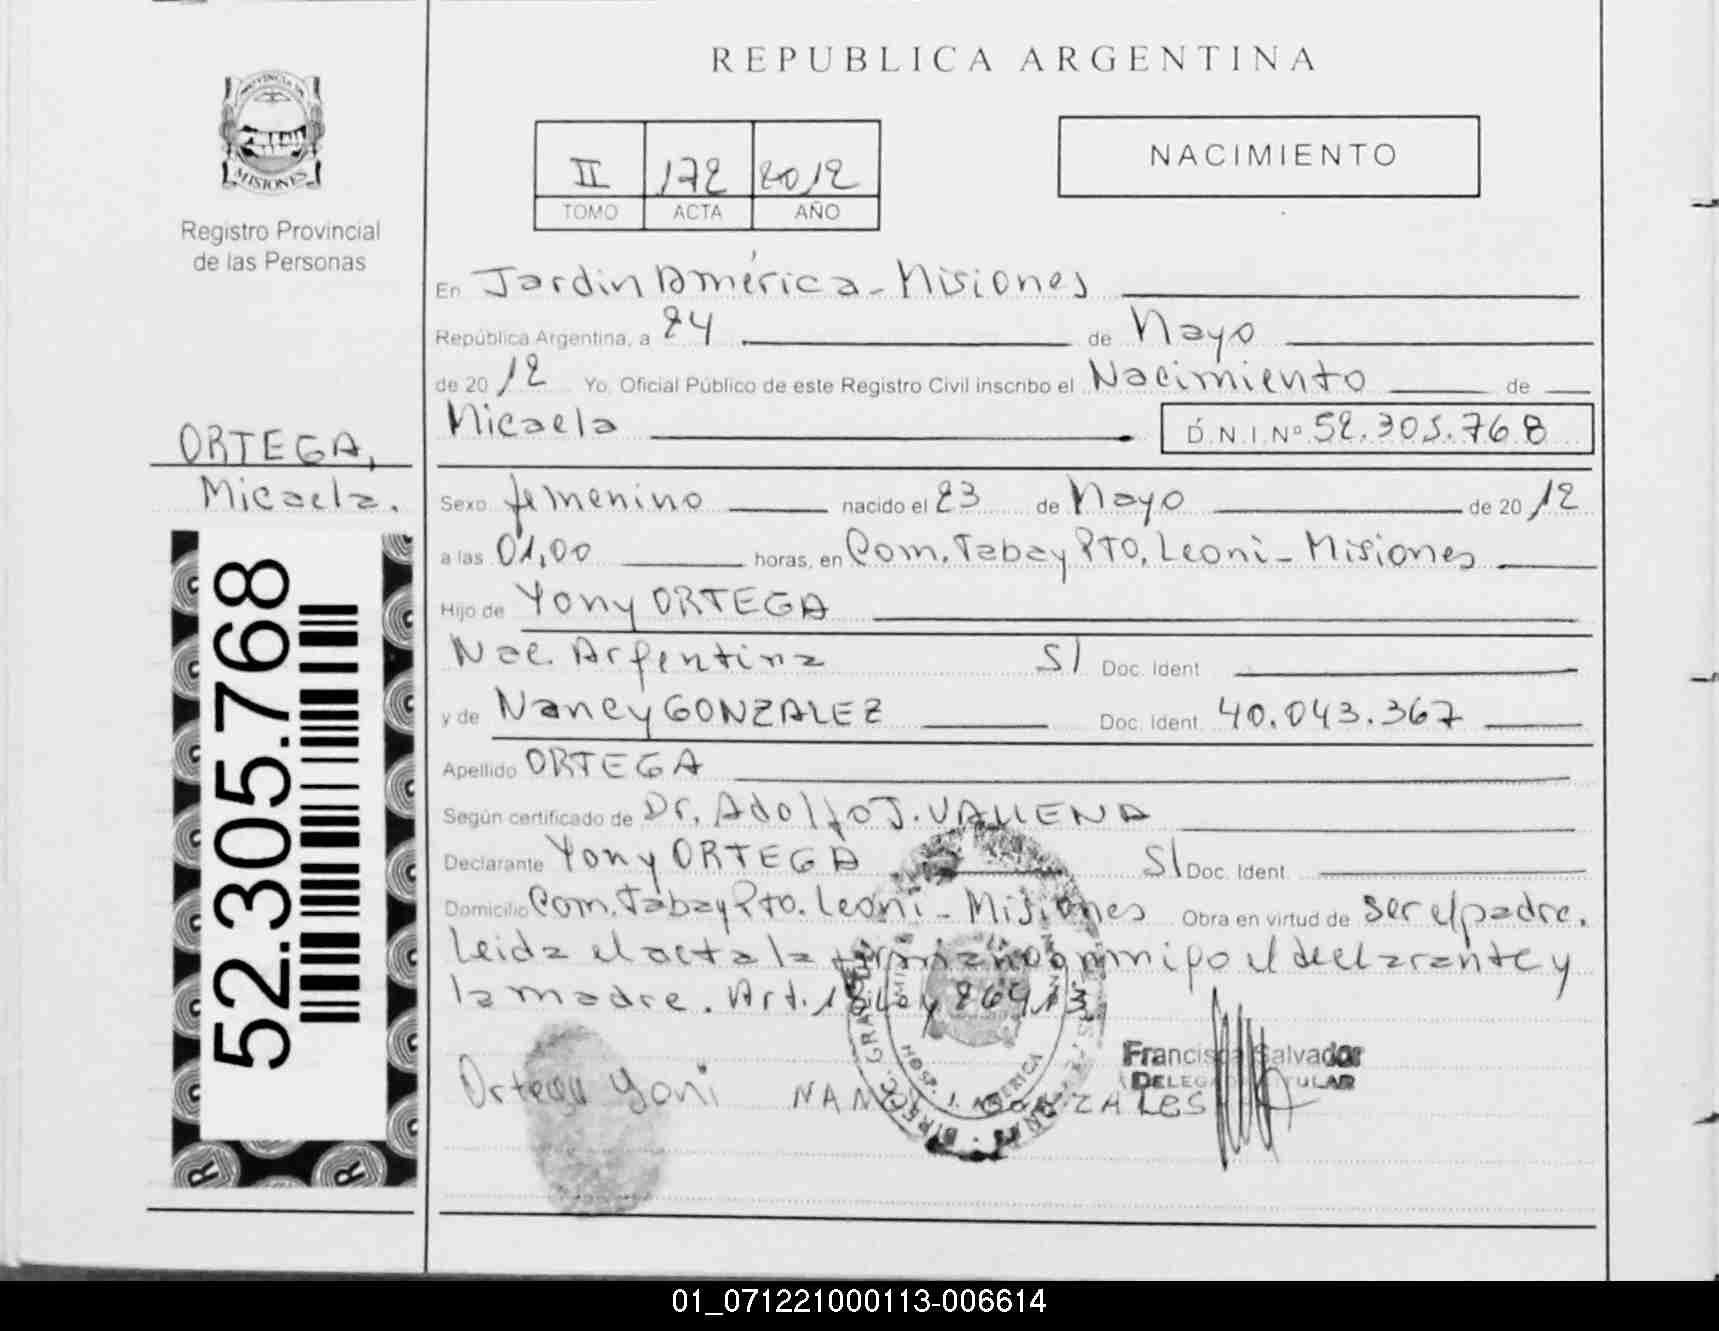 REPUBLICA ARGENTINA
PROVINCIA DE
MISIONES
Registro Provincial
de las Personas
II 172 2012
TOMO ACTA AÑO
NACIMIENTO
En Jardin América - Misiones
República Argentina, a 24 de Mayo
de 2012 Yo, Oficial Público de este Registro Civil inscribo el Nacimiento de
Micaela D.N.I. Nº 52.305.768
ORTEGA,
Micaela.
52.305.768
Sexo femenino nacido el 23 de Mayo de 2012
a las 01,00 horas, en Com. Tabay PTO. Leoni - Misiones
Hijo de Yony ORTEGA
Nac. Argentina S/ Doc. Ident.
y de Nancy GONZALEZ Doc. Ident. 40.043.367
Apellido ORTEGA
Según certificado de Dr. Adolfo J.
Declarante Yony ORTEGA S/ Doc. Ident.
Domicilio Com. Tabay Pto. Leoni - Misiones Obra en virtud de ser el padre.
Leida el acta la conmigo el declarante y
la madre. Art. Ley 26413
Ortega Yoni
Salvador
HOSP. J. AMERICA
01_071221000113-006614